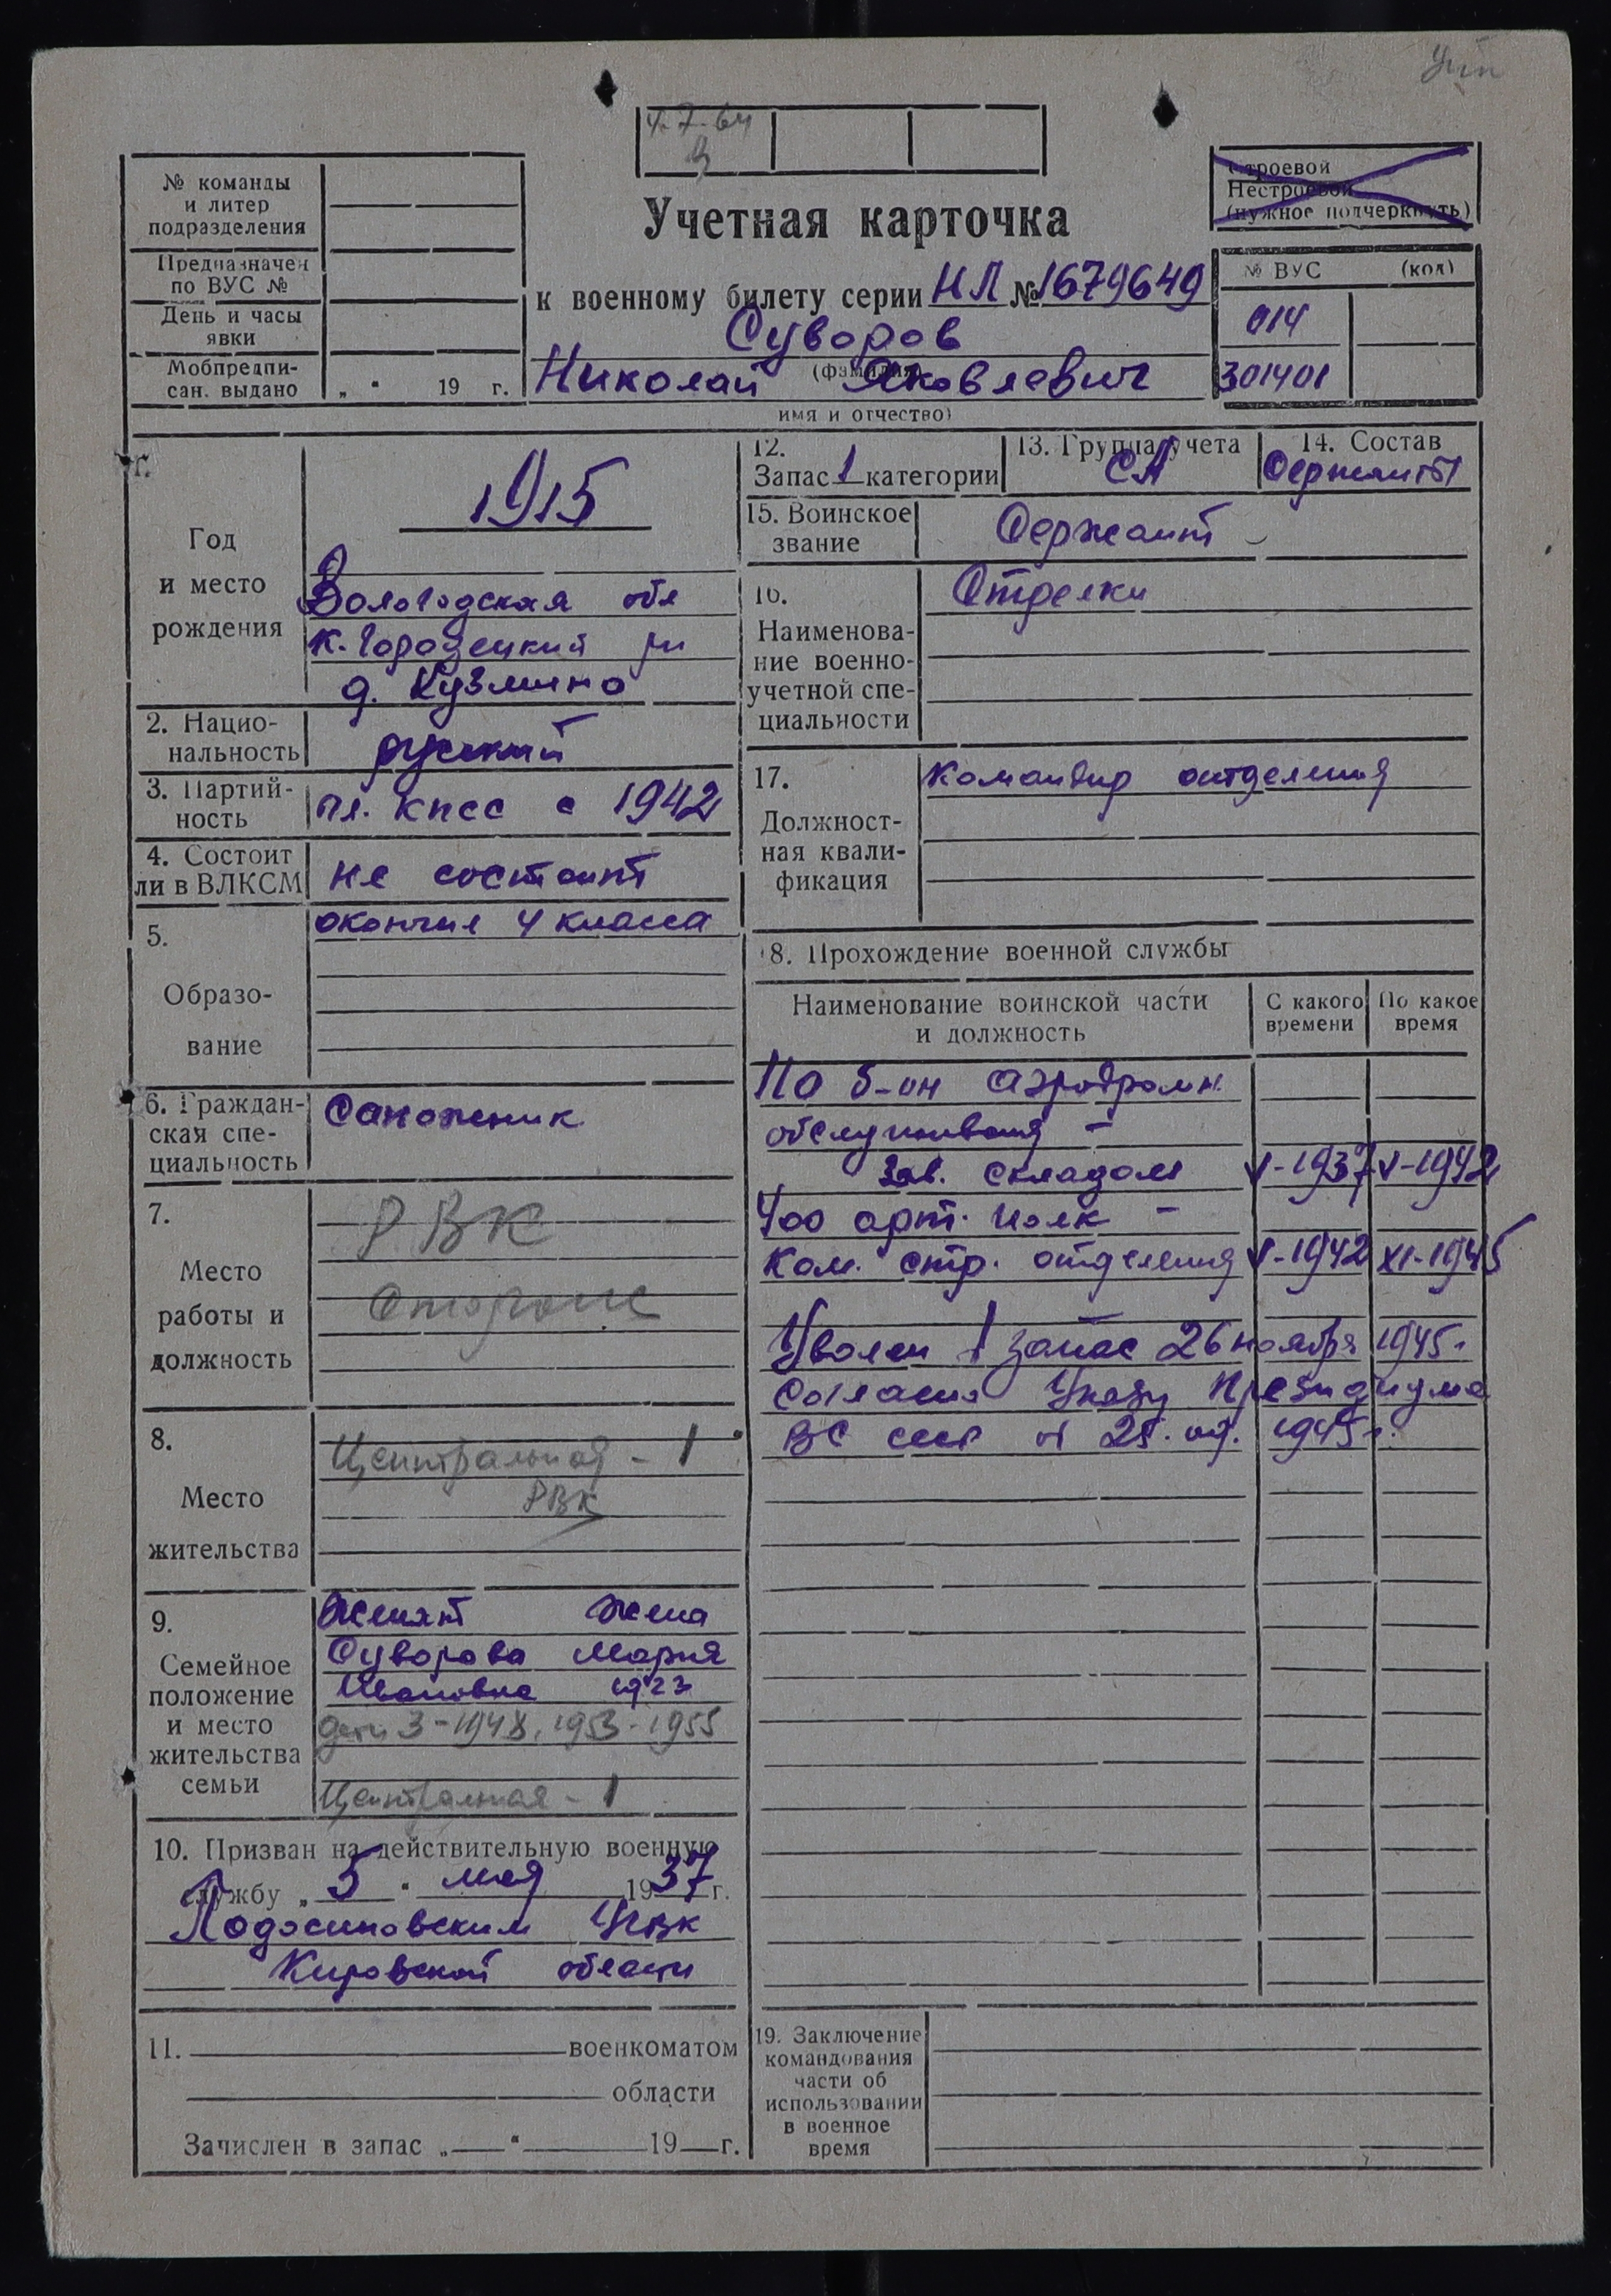 4.7.64
№ команды
и литер
подразделения
Предназначен
по ВУС №
День и часы
явки
Мобпредпи-
сан. выдано „ “ 19 г.
Учетная карточка
к военному билету серии НЛ № 1679649
Суворов
(фамилия)
Николай Яковлевич
имя и отчество)
Строевой
Нестроевой
(нужное подчеркнуть)
№ ВУС (код)
014
301401
Год
и место
рождения
1915
Вологодская обл
К. Городецкий рн
д. Кузмино
2. Нацио-
нальность русский
3. Партий-
ность чл. КПСС с 1942
4. Состоит
ли в ВЛКСМ не состоит
5.
Образо-
вание
окончил 4 класса
6. Граждан-
ская спе-
циальность
Сапожник
7.
Место
работы и
должность
РВК
Сторож
8.
Место
жительства
Центральная - 1
РВК
9.
Семейное
положение
и место
жительства
семьи
Женат жена
Суворова Мария
Ивановна 1923
дети 3 - 1948, 1953 - 1955
Центральная - 1
10. Призван на действительную военную
службу „ 5 “ мая 1937 г.
Подосиновским РВК
Кировской области
11. военкоматом
области
Зачислен в запас „ “ 19 г.
12.
Запас 1 категории
13. Группа учета
СА
14. Состав
Сержанты
15. Воинское
звание
Сержант
16.
Наименова-
ние военно-
учетной спе-
циальности
Стрелки
17.
Должност-
ная квали-
фикация
Командир отделения
18. Прохождение военной службы
Наименование воинской части
и должность
С какого
времени
По какое
время
110 б-он аэродромн.
обслуживания -
Зав. складом V-1937 V-1942
400 арт. полк -
Ком. стр. отделения V-1942 XI-1945
Уволен в запас 26 ноября 1945г.
Согласно Указу Президиума
ВС СССР от 25. 1945г.
19. Заключение
командования
части об
использовании
в военное
время